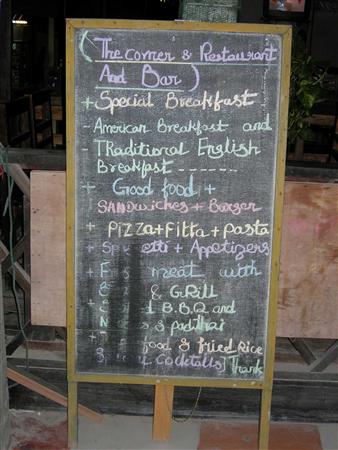 (The corner & Restaurant
And Bar)
+ Special Breakfast
- American Breakfast and
- Traditional English
Breakfast -------
+ Good food +
SANDwiches + Burger
+ PIZZA + Fitta + pasta
+ + Appetizers
+ meat with
& GRILL
+ B.B.Q and
& padthai
+ food & fried Rice
Cocktails) Thank